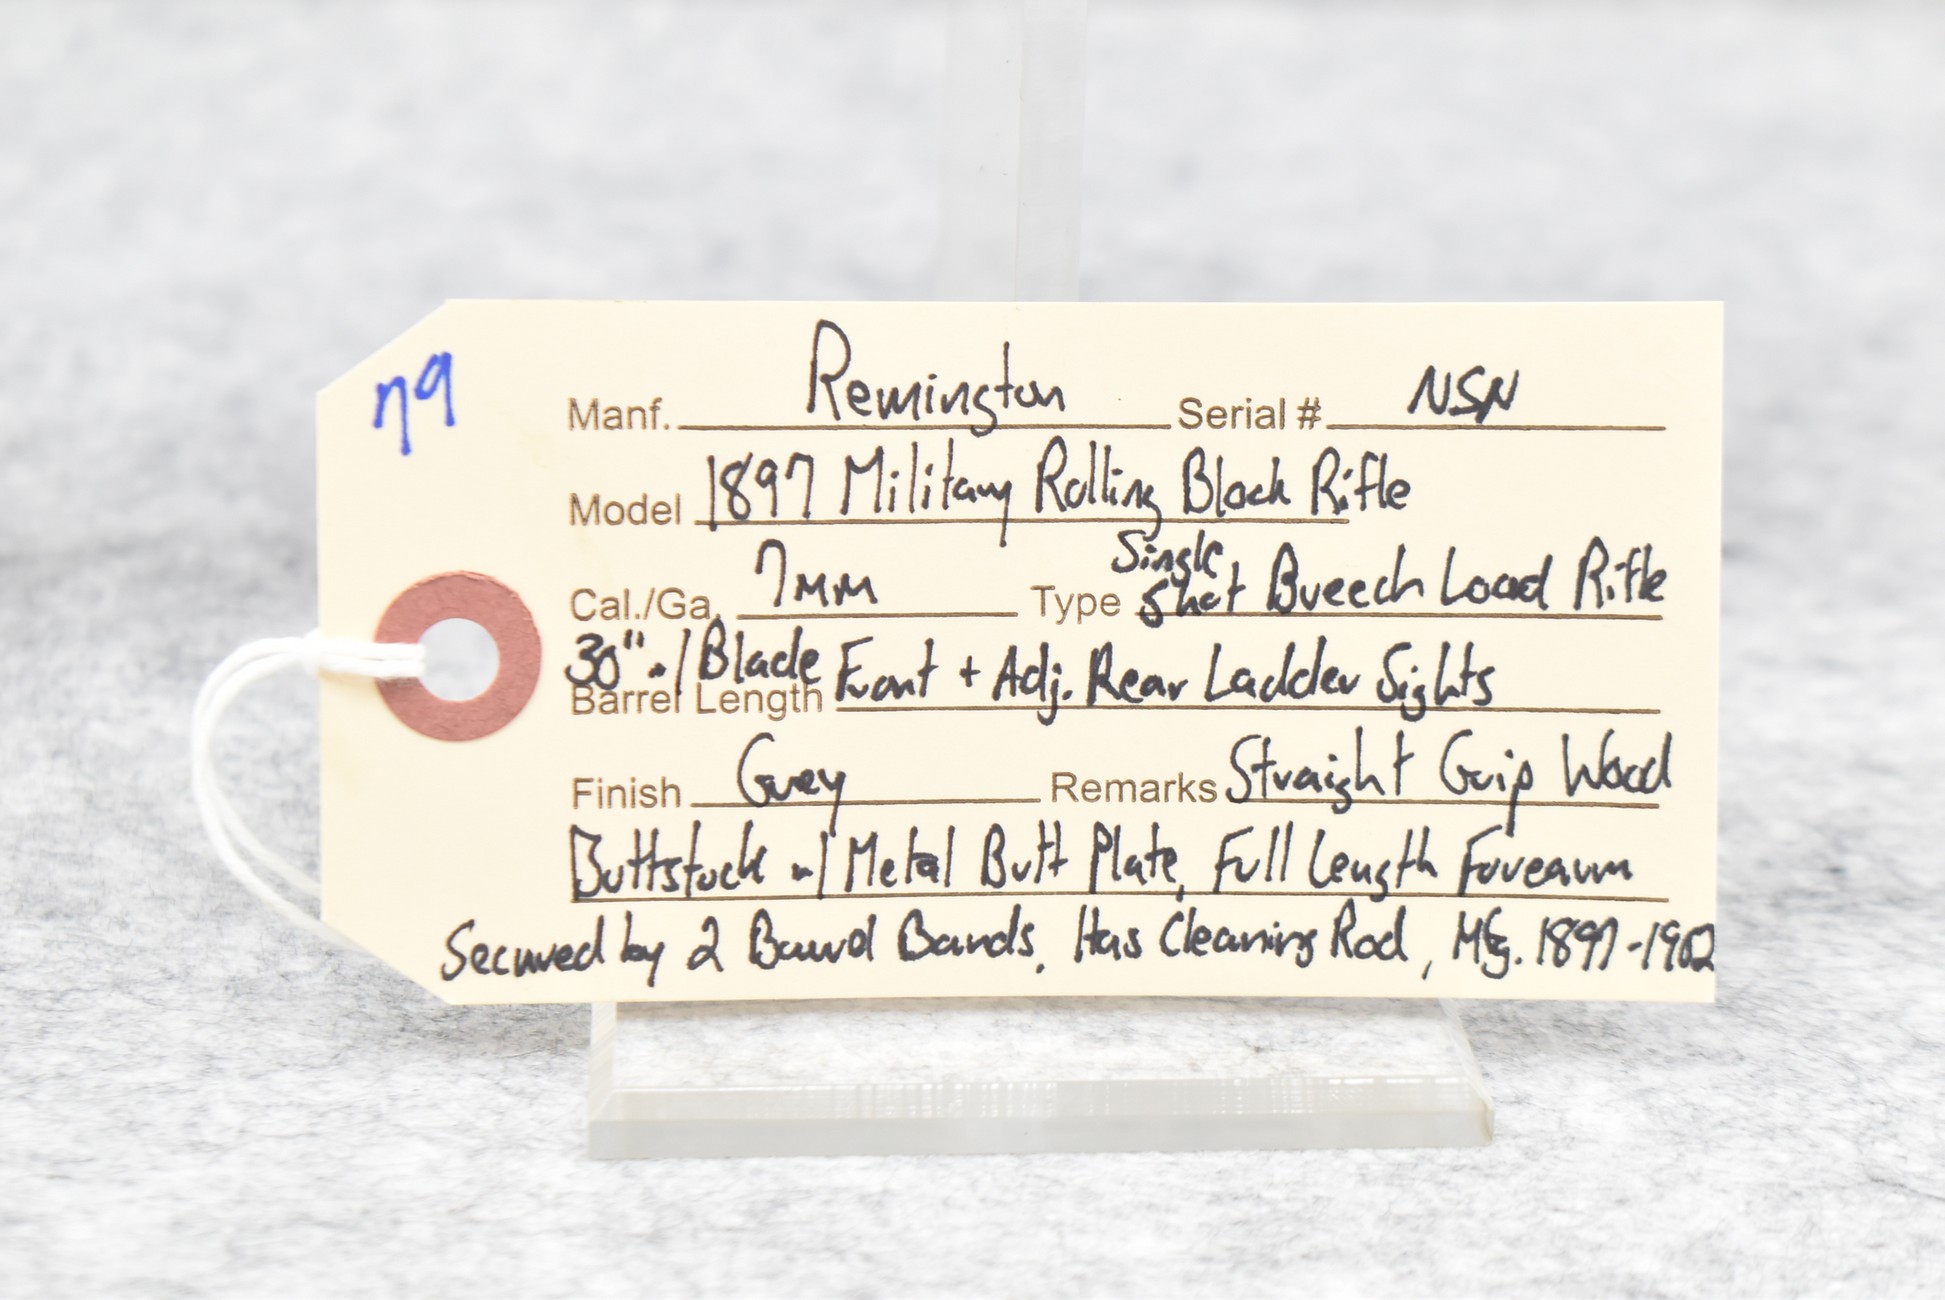 79
Manf. Remington Serial # NSN
Model 1897 Military Rolling Block Rifle
Cal./Ga. 7mm Type Single Shot Breech Load Rifle
Barrel Length 30" w/ Blade Front + Adj. Rear Ladder Sights
Finish Grey Remarks Straight Grip Wood
Buttstock w/ Metal Butt Plate, Full Length Forearm
Secured by 2 Barrel Bands, Has Cleaning Rod, Mfg. 1897-1902